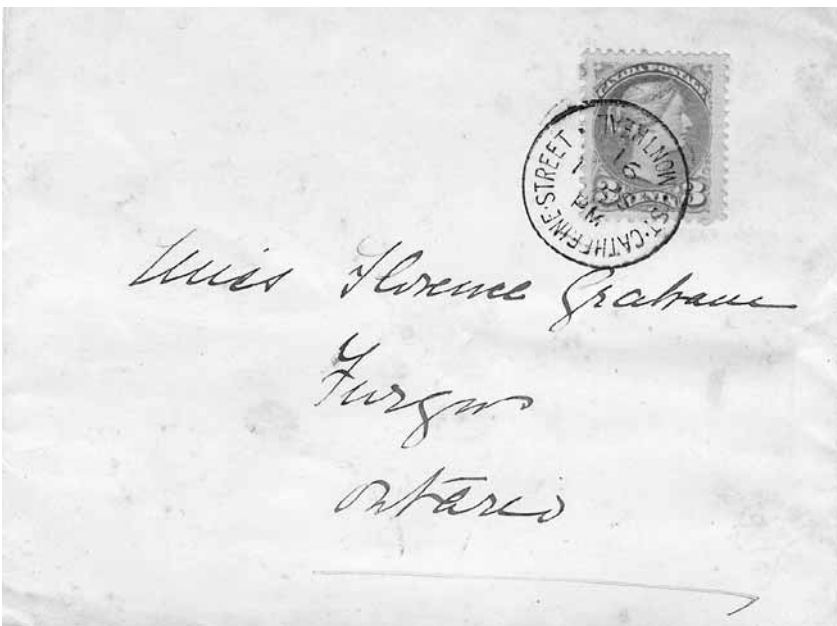 CANADA POSTAGE
3 CENTS 3
ST. CATHERINE STREET · MONTREAL
16
PM
Miss Florence Graham
Furgus
Ontario